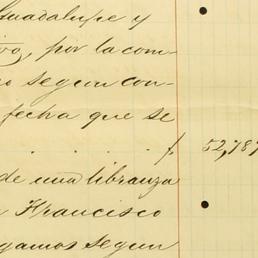 Guadalupe y
ivo, por la com-
o segun con-
fecha que se
. . . . . f 52,787
de una libranza
n Francisco
gamos segun